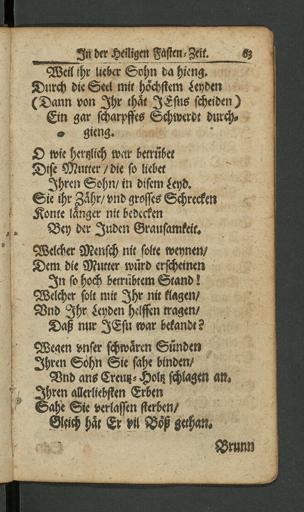 In der Heiligen Fasten-Zeit. 63
Weil ihr lieber Sohn da hieng.
Durch die Seel mit höchstem Leyden
(Dann von Ihr thät JEsus scheiden)
Ein gar scharpffes Schwerdt durch-
gieng.
O wie hertzlich war betrübet
Dise Mutter/ die so liebet
Ihren Sohn/ in disem Leyd.
Sie ihr Zähr/ vnd grosses Schrecken
Konte länger nit bedecken
Bey der Juden Grausamkeit.
Welcher Mensch nit solte weynen/
Dem die Mutter würd erscheinen
In so hoch betrübtem Stand!
Welcher solt mit Ihr nit klagen/
Vnd Ihr Leyden helffen tragen/
Daß nur JEsu war bekandt?
Wegen vnser schwären Sünden
Ihren Sohn Sie sahe binden/
Vnd ans Creutz-Holtz schlagen an.
Ihren allerliebsten Erben
Sahe Sie verlassen sterben/
Gleich hät Er vil Böß gethan.
Brunn